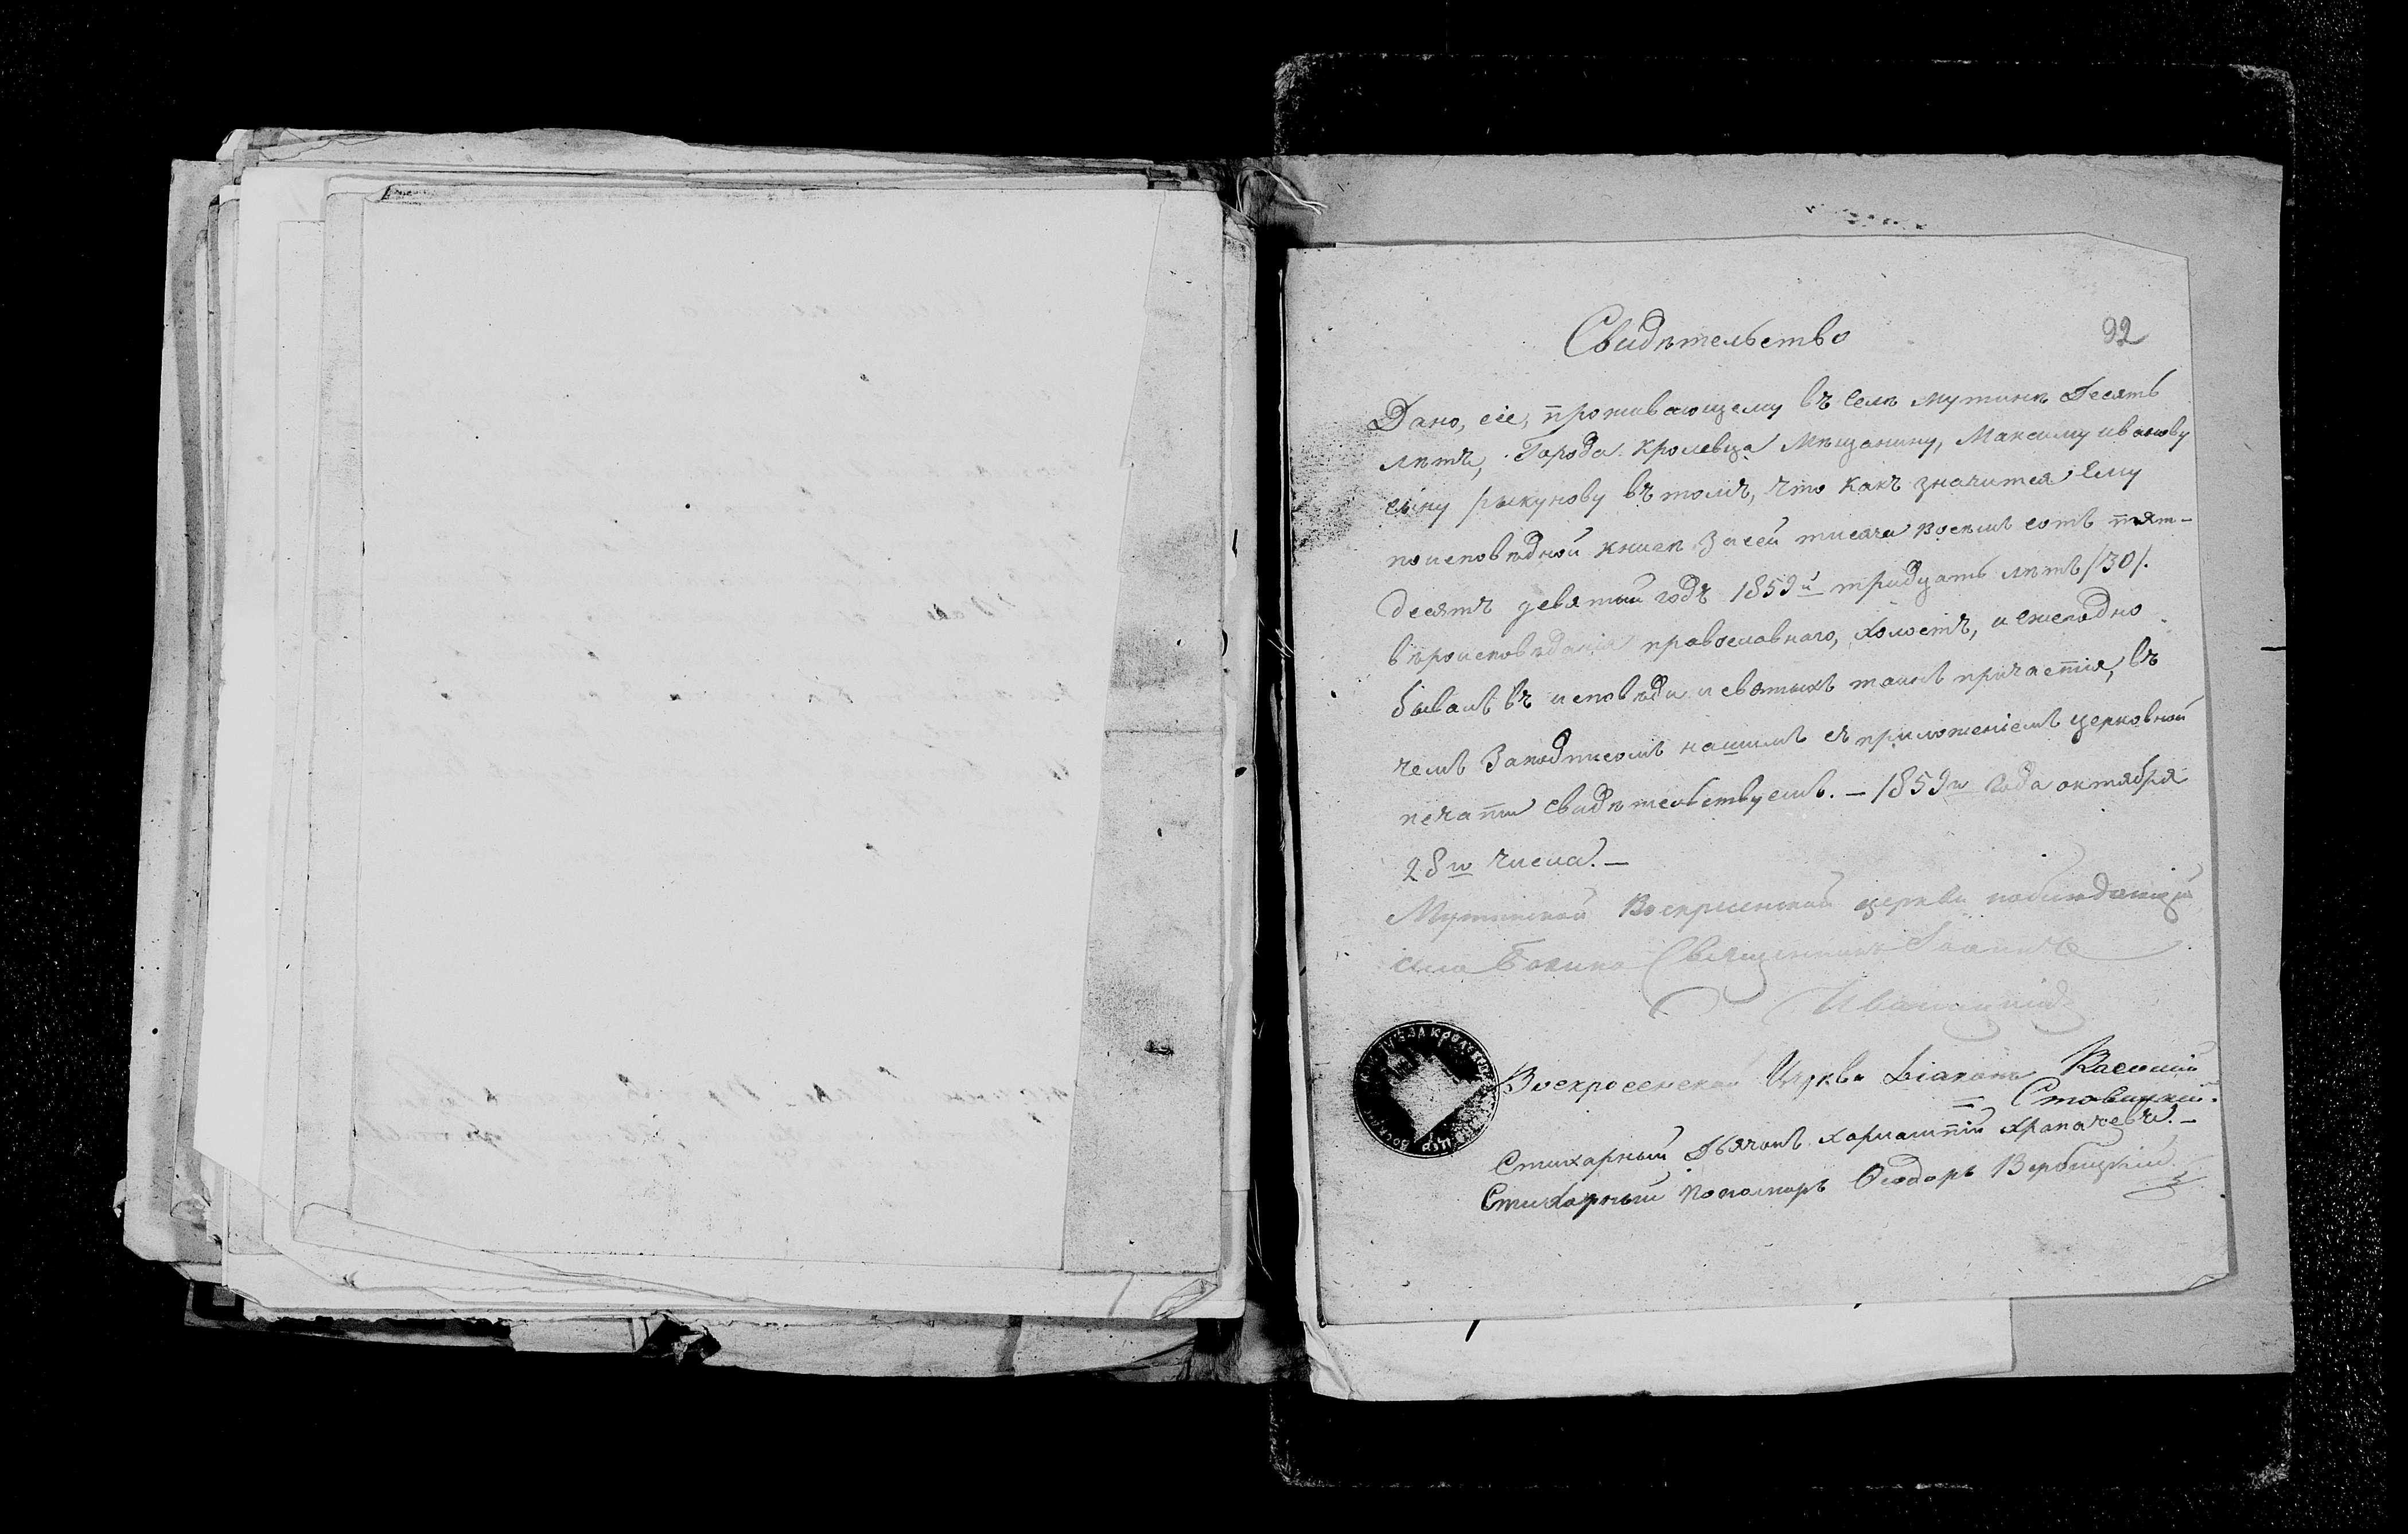 Свидѣтельство
92
Дано, сіе, проживающему въ селѣ мутинѣ десять
лѣтъ, Города Кролевца Мѣщанину, Максиму иванову
сыну рыкунову въ томъ, что какъ значится ему
по исповѣдной книгѣ За сей тисяча восемь сотъ пят-
десятъ девятый годъ 1859й тридцать лѣтъ /30/.
вѣроисповѣданія православнаго, холостъ, и ежегодно
бывалъ въ исповѣди и святыхъ таинъ причастія, въ
чемъ За подписомъ нашимъ съ приложеніемъ церковной
печати свидѣтельствуемъ. — 1859го года октября
28го числа. —
Мутинской Воскресенской церкви наблюдающій
села Священникъ Іоаннъ
Воскресенской Церкви Діаконъ Василій
Ставицкій.
Стихарный Дьячокъ Харлампій Храпачевъ. —
Стихарный Пономарь Ѳеодоръ Вербицкій